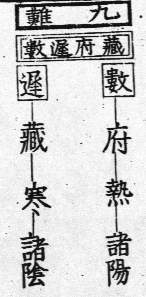 九難
藏府遲數
數府熱諸陽
遲藏寒諸陰